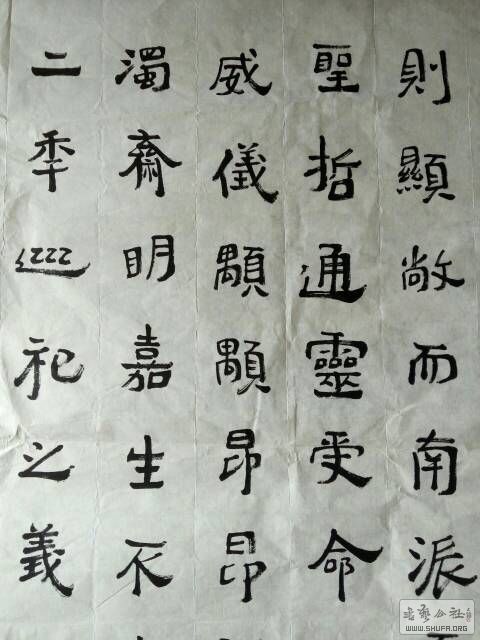 則顯敞而南派
聖哲通靈受命
威儀顒顒昂昂
濁齋眀嘉生不
二秊巡祀之義
書藝公社
WWW.SHUFA.ORG